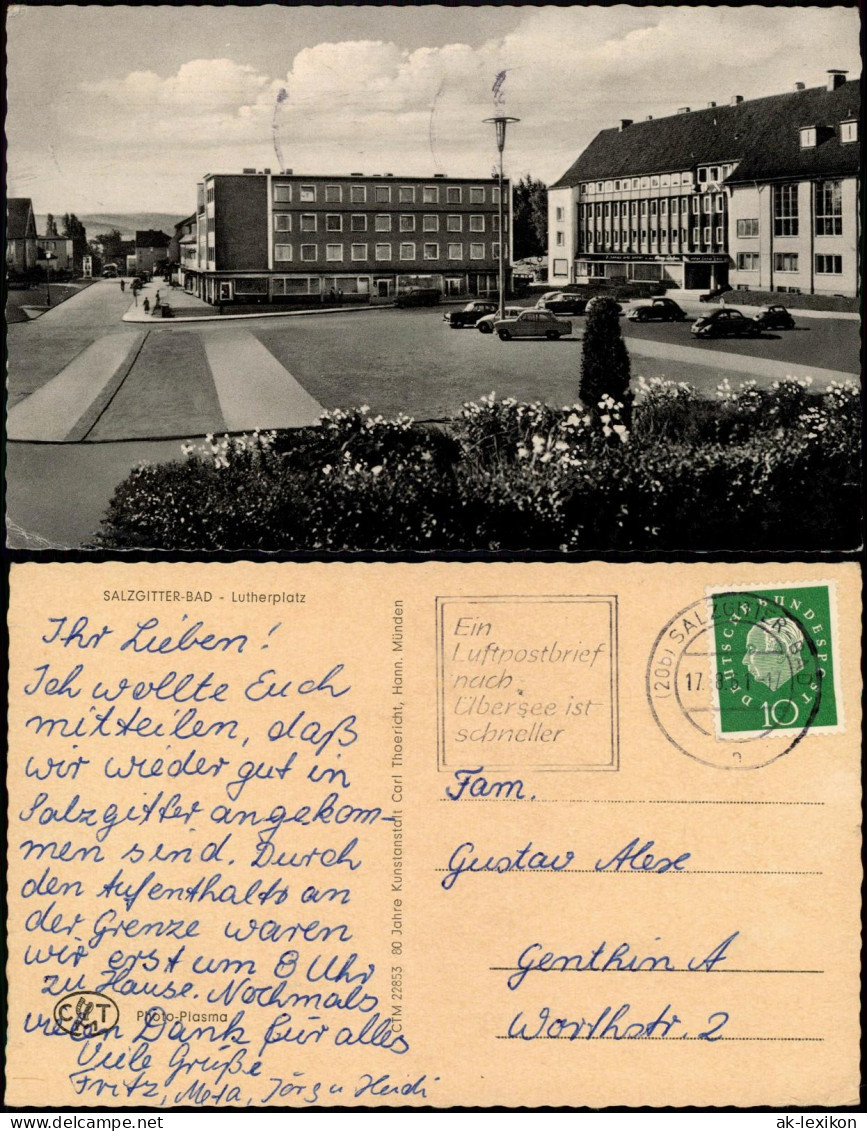 SALZGITTER-BAD - Lutherplatz
Ihr Lieben!
Ich wollte Euch
mitteilen, daß
wir wieder gut in
Salzgitter angekom-
men sind. Durch
den Aufenthalts an
der Grenze waren
wir erst um 8 Uhr
zu Hause. Nochmals
vielen Dank für alles
Viele Grüße
Fritz, Meta, Jörg u Heidi
C T
Photo-Plasma
CTM 22853 80 Jahre Kunstanstalt Carl Thoericht, Hann. Münden
Ein
Luftpostbrief
nach
Übersee ist
schneller
(20b) SALZGITTER-B
17.8.61-17
DEUTSCHE BUNDESPOST
10
Fam.
Gustav Alexe
Genthin A
Worthstr. 2
www.ansichtskarten-lexikon.de
ak-lexikon